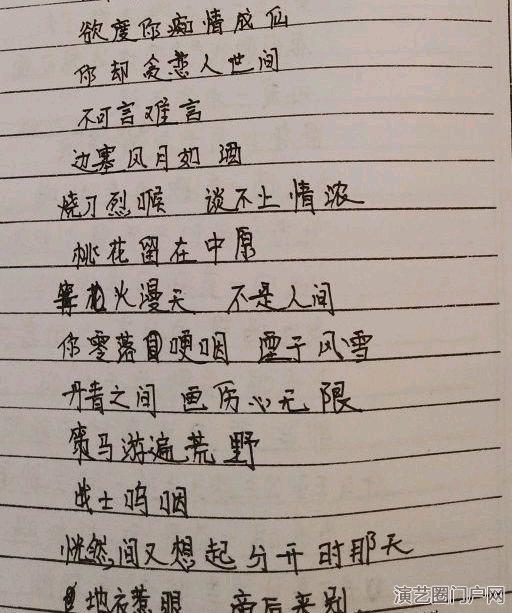 欲度你痴情成仙
你却贪恋人世间
不可言难言
边塞风月如酒
烧刀烈喉 谈不上情浓
桃花留在中原
火漫天 不是人间
你零落 哽咽 风雪
丹青之间 画历心无限
策马游遍荒野
战士呜咽
恍然间又想起分开时那天
地衣惹眼 帝后亲别
演艺圈门户网
www.